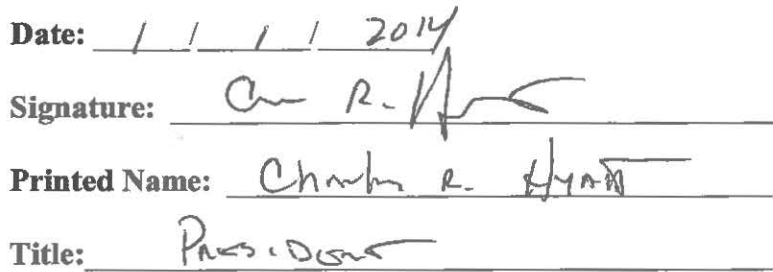 Date: 1 / 1 / 2014
Signature: R.
Printed Name: Charles R. Hyatt
Title: President